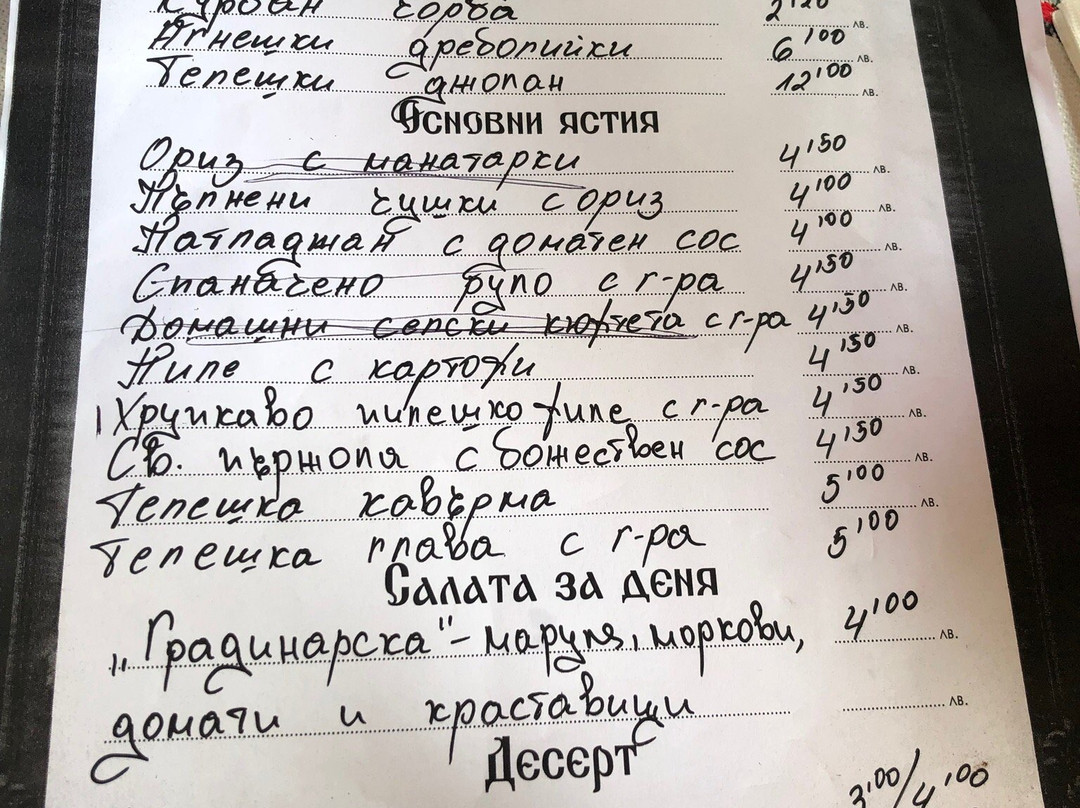 Курбан чорба 2'20 лв.
Агнешки дреболийки 6'00 лв.
Телешки джолан 12'00 лв.
Основни ястия
Ориз с манатарки 4'50 лв.
Пълнени чушки с ориз 4'00 лв.
Патладжан с доматен сос 4'00 лв.
Спаначено руло с г-ра 4'50 лв.
Домашни селски кюфтета с г-ра 4'50 лв.
Пиле с картофи 4'50 лв.
Хрупкаво пилешко филе с г-ра 4'50 лв.
Св. пържола с божествен сос 4'50 лв.
Телешка кавърма 5'00 лв.
Телешка глава с г-ра 5'00
Салата за деня
„Градинарска" - маруля, моркови, 4'00 лв.
домати и краставици лв.
Десерт
3'00/4'00